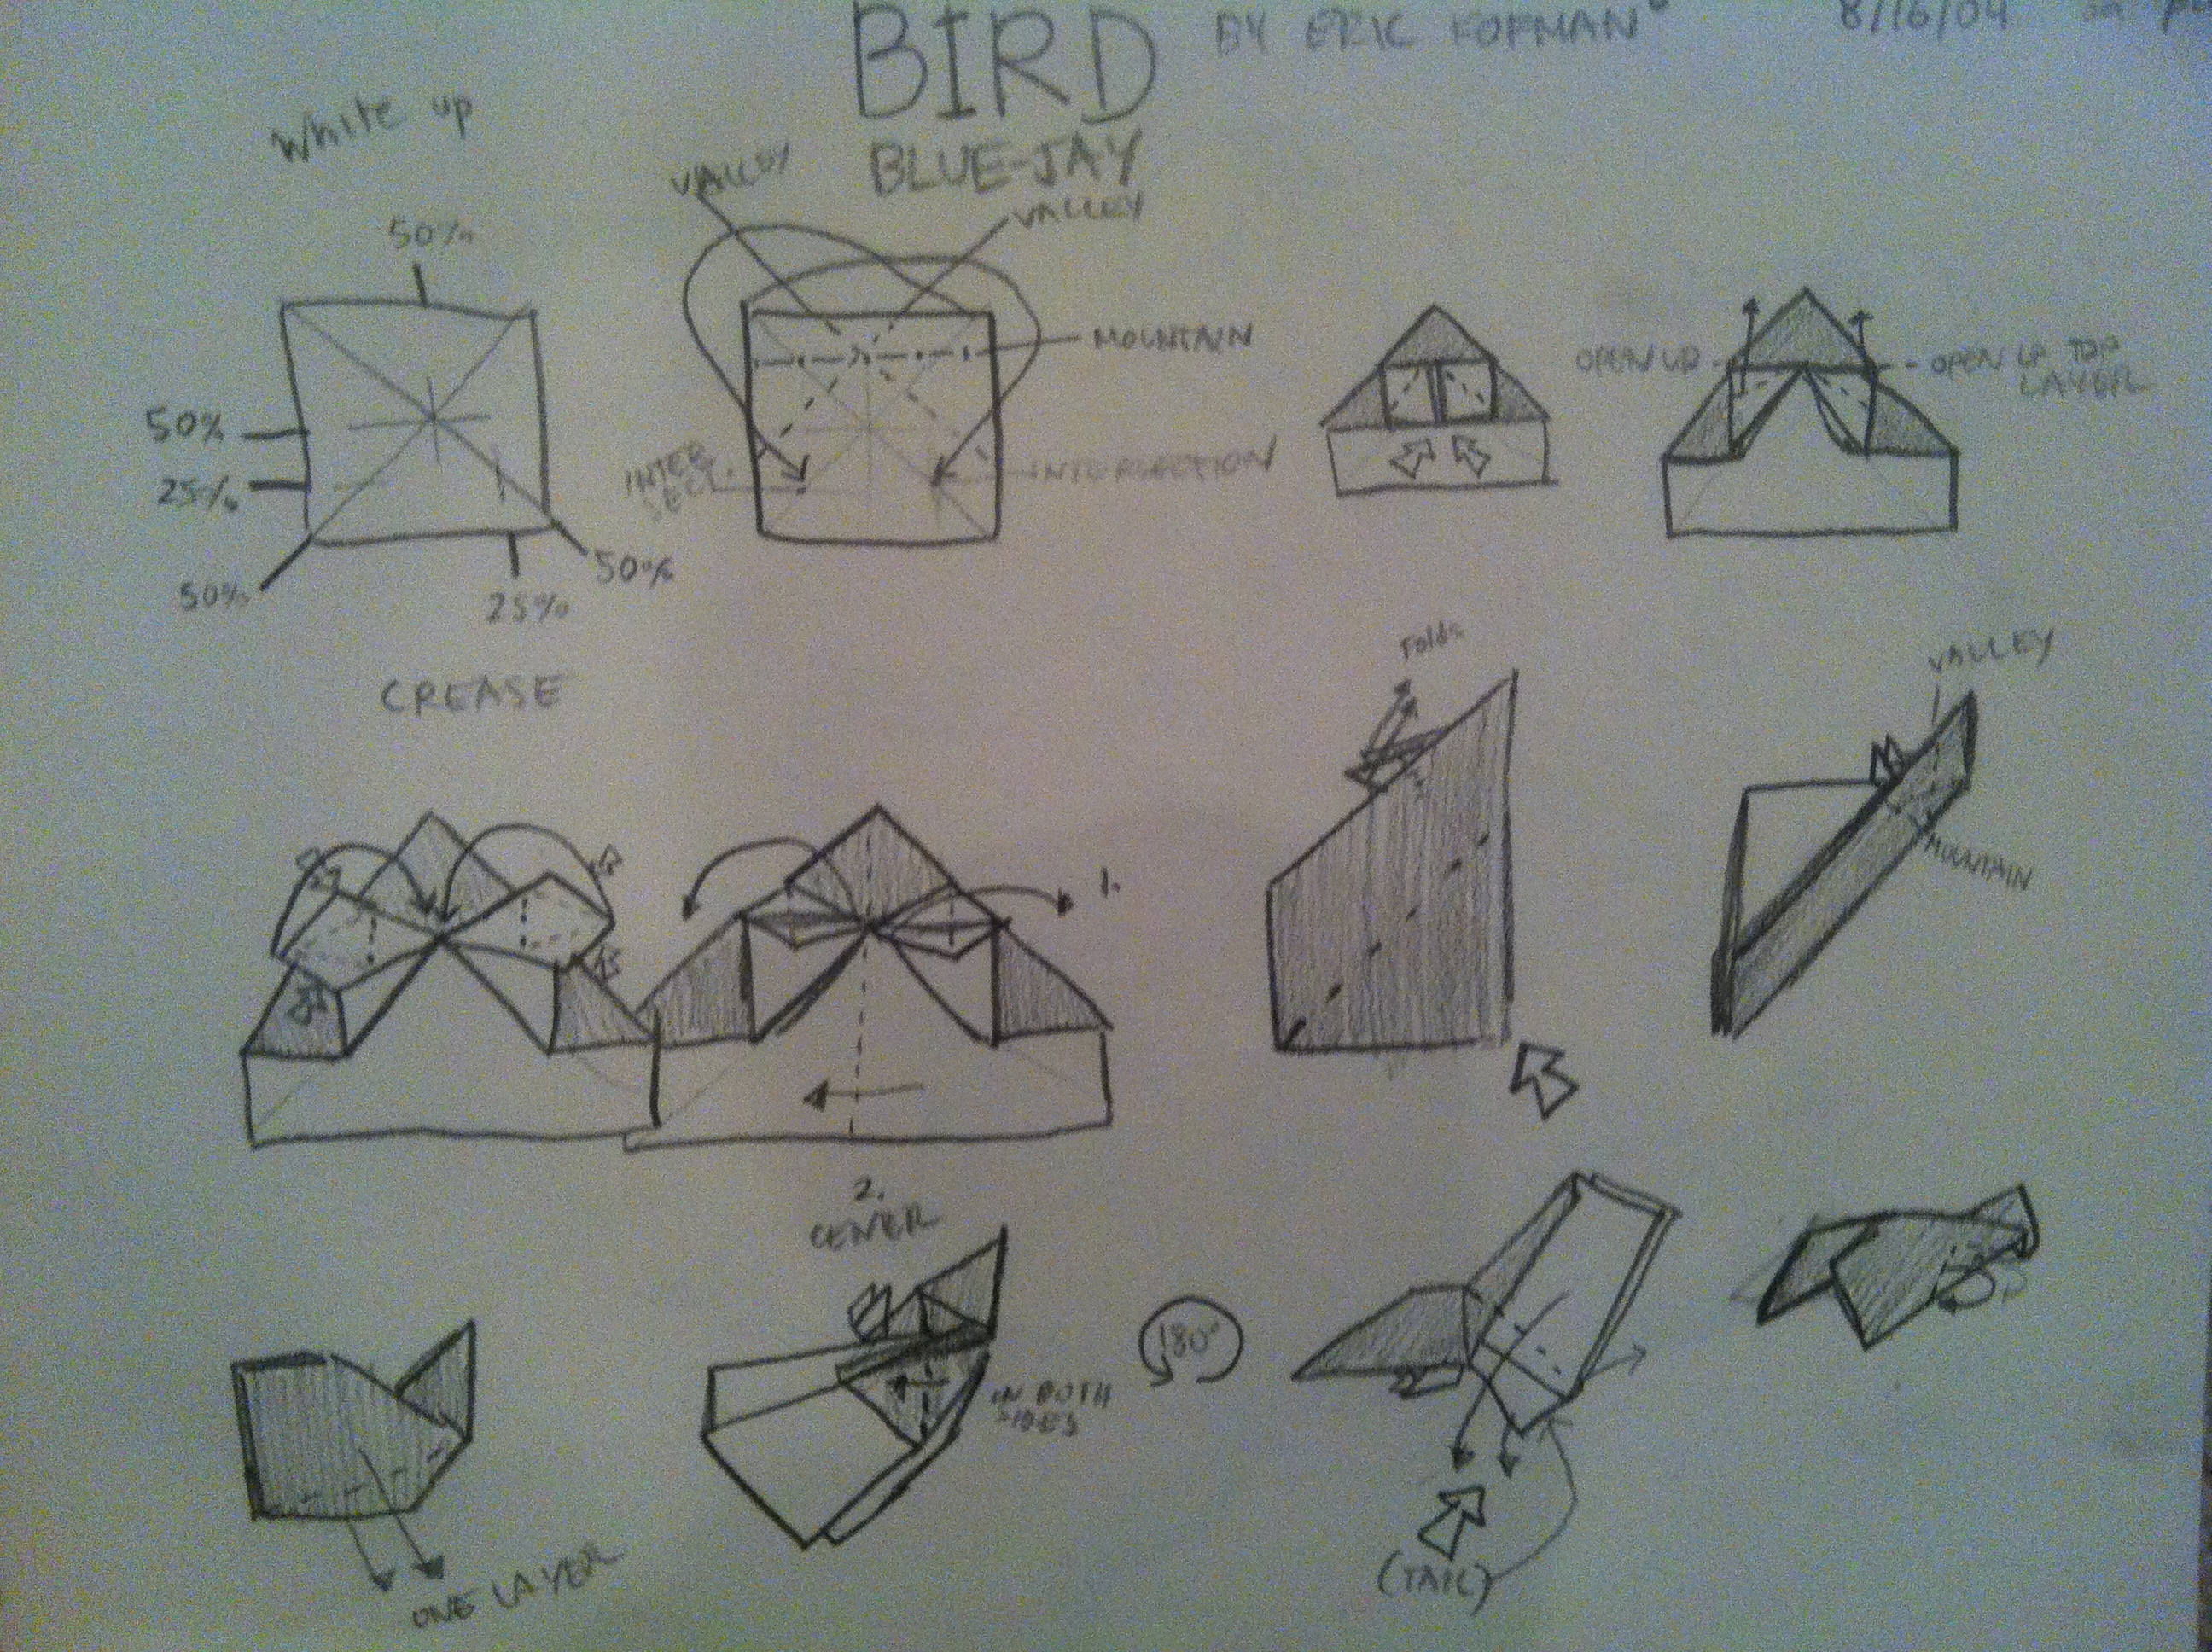 BIRD
BY ERIC FORMAN
8/16/04
BLUE-JAY
White up
50%
50%
25%
50%
50%
25%
CREASE
VALLEY
VALLEY
MOUNTAIN
INTER
SECT.
INTERSECTION
OPEN UP
OPEN UP TOP
LAYER
1.
2.
CENER
Folds
VALLEY
MOUNTAIN
ONE LAYER
ON BOTH
SIDES
180°
(TAIL)